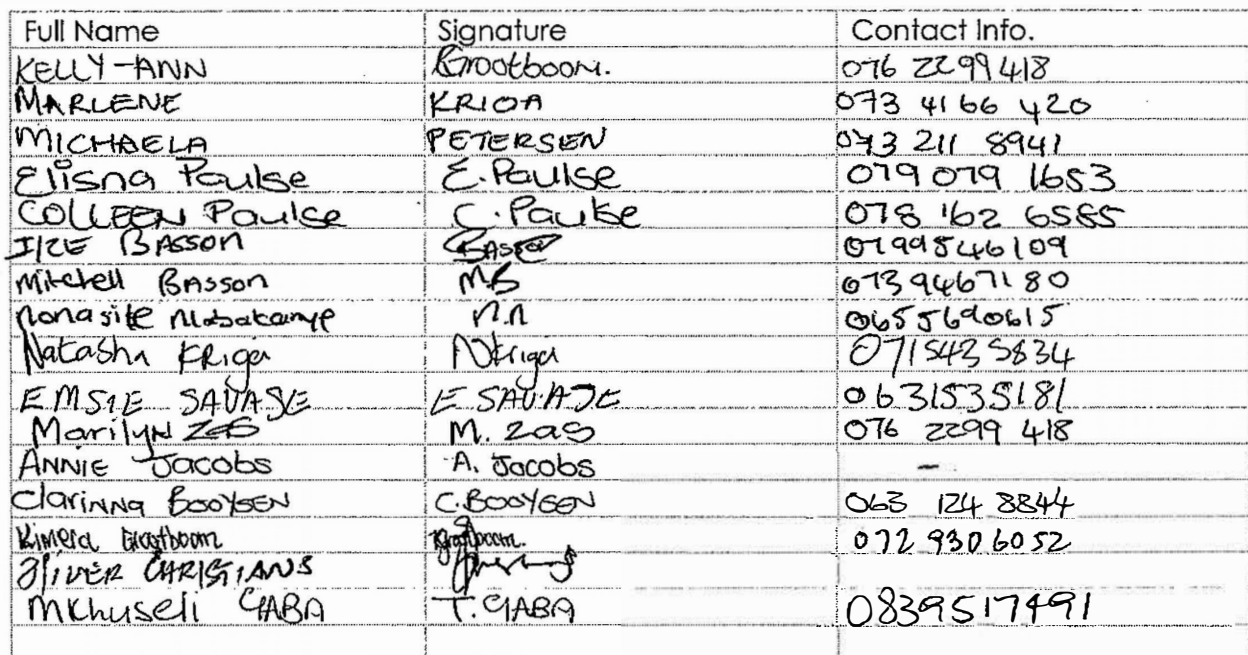 Full Name Signature Contact Info.
KELLY-ANN Grootboom. 076 2299 418
MARLENE KRIGA 073 4166 420
MICHAELA PETERSEN 073 211 8941
Elisna Paulse E. Paulse 079 079 1653
COLLEEN Paulse C. Paulse 078 162 6585
IlZE BASSON Basson 0799546109
Mitchell BASSON MB 0739467180
nonasite n.n 0655690615
Natasha KRiger NKriger 0715435834
EMSIE SAVAGE E SAVAGE 0631535181
Marilyn Zas M. Zas 076 2299 418
ANNIE Jacobs A. Jacobs -
Clarinna BOOYSEN C. BOOYSEN 063 124 8844
Kimera Grootboom Grootboom. 072 930 6052
OliVER CHRISTIANS
Mkhuseli GABA T. GABA 0839517491